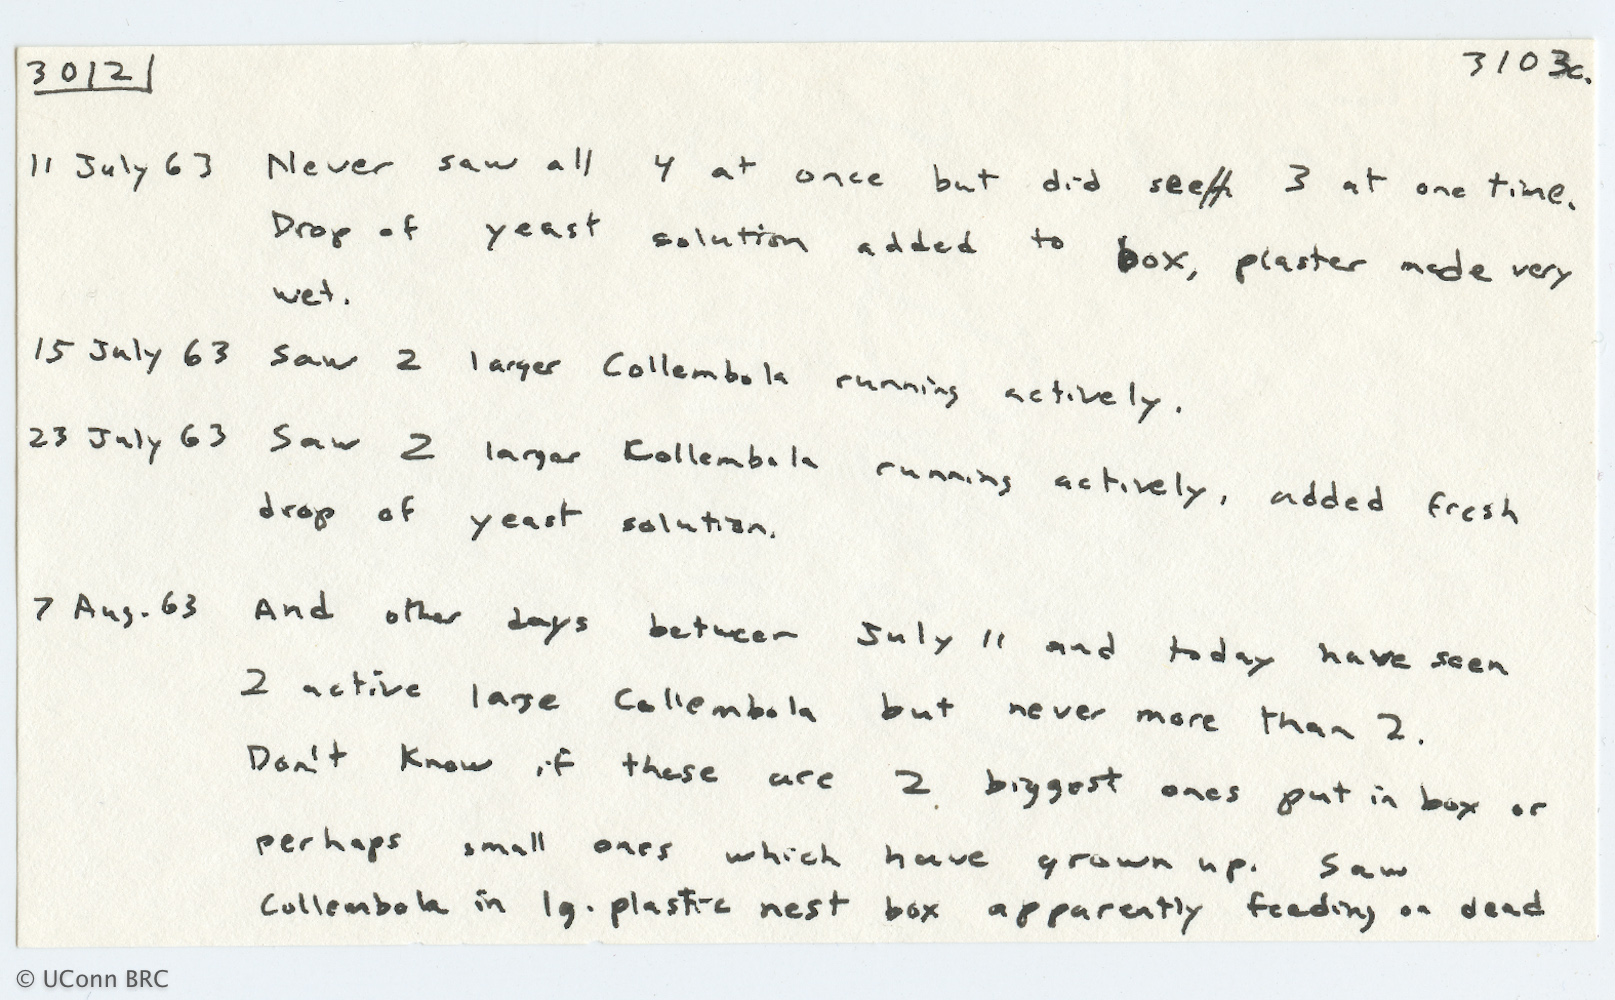 3012 3103c.
11 July 63 Never saw all 4 at once but did see 3 at one time.
Drop of yeast solution added to box, plaster made very
wet.
15 July 63 Saw 2 larger Collembola running actively.
23 July 63 Saw 2 larger Collembola running actively, added fresh
drop of yeast solution.
7 Aug. 63 And other days between July 11 and today have seen
2 active large Collembola but never more than 2.
Don't know if these are 2 biggest ones put in box or
perhaps small ones which have grown up. Saw
Collembola in lg. plastic nest box apparently feeding on dead
© UConn BRC